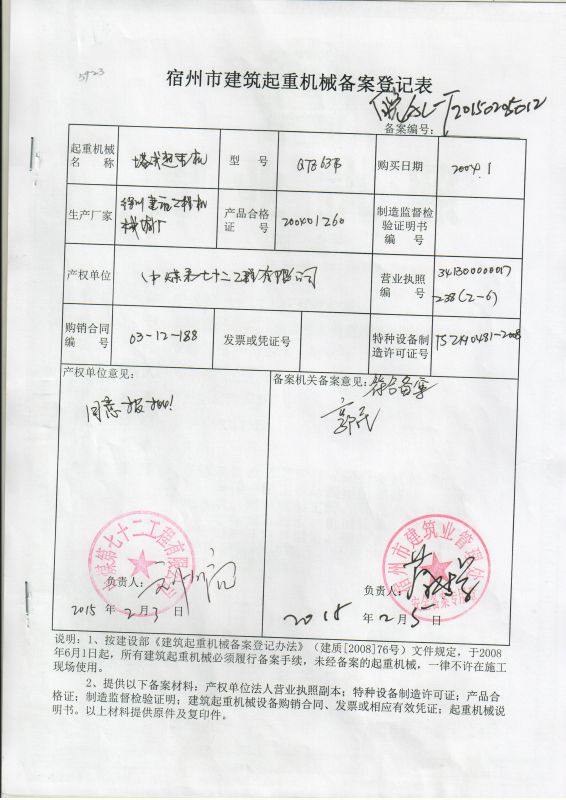 5923
宿州市建筑起重机械备案登记表
备案编号：
起重机械
名　称
塔式起重机
型　号
QTZ63B
购买日期
2004.1
生产厂家
产品合格
证　号
200401260
制造监督检
验证明书
编　号
产权单位
中煤第七十二工程有限公司
营业执照
编　号
34130000017
238(2-6)
购销合同
编　号
03-12-188
发票或凭证号
特种设备制
造许可证号
产权单位意见：
同意
备案机关备案意见：符合备案
中煤第七十二工程有限公司
宿州市建筑业管理
负责人：
负责人：
2015 年 2月3 日
2015 年 2月5 日
说明：1、按建设部《建筑起重机械备案登记办法》（建质[2008]76号）文件规定，于2008
年6月1日起，所有建筑起重机械必须履行备案手续，未经备案的起重机械，一律不许在施工
现场使用。
2、提供以下备案材料：产权单位法人营业执照副本；特种设备制造许可证；产品合
格证；制造监督检验证明；建筑起重机械设备购销合同、发票或相应有效凭证；起重机械说
明书。以上材料提供原件及复印件。